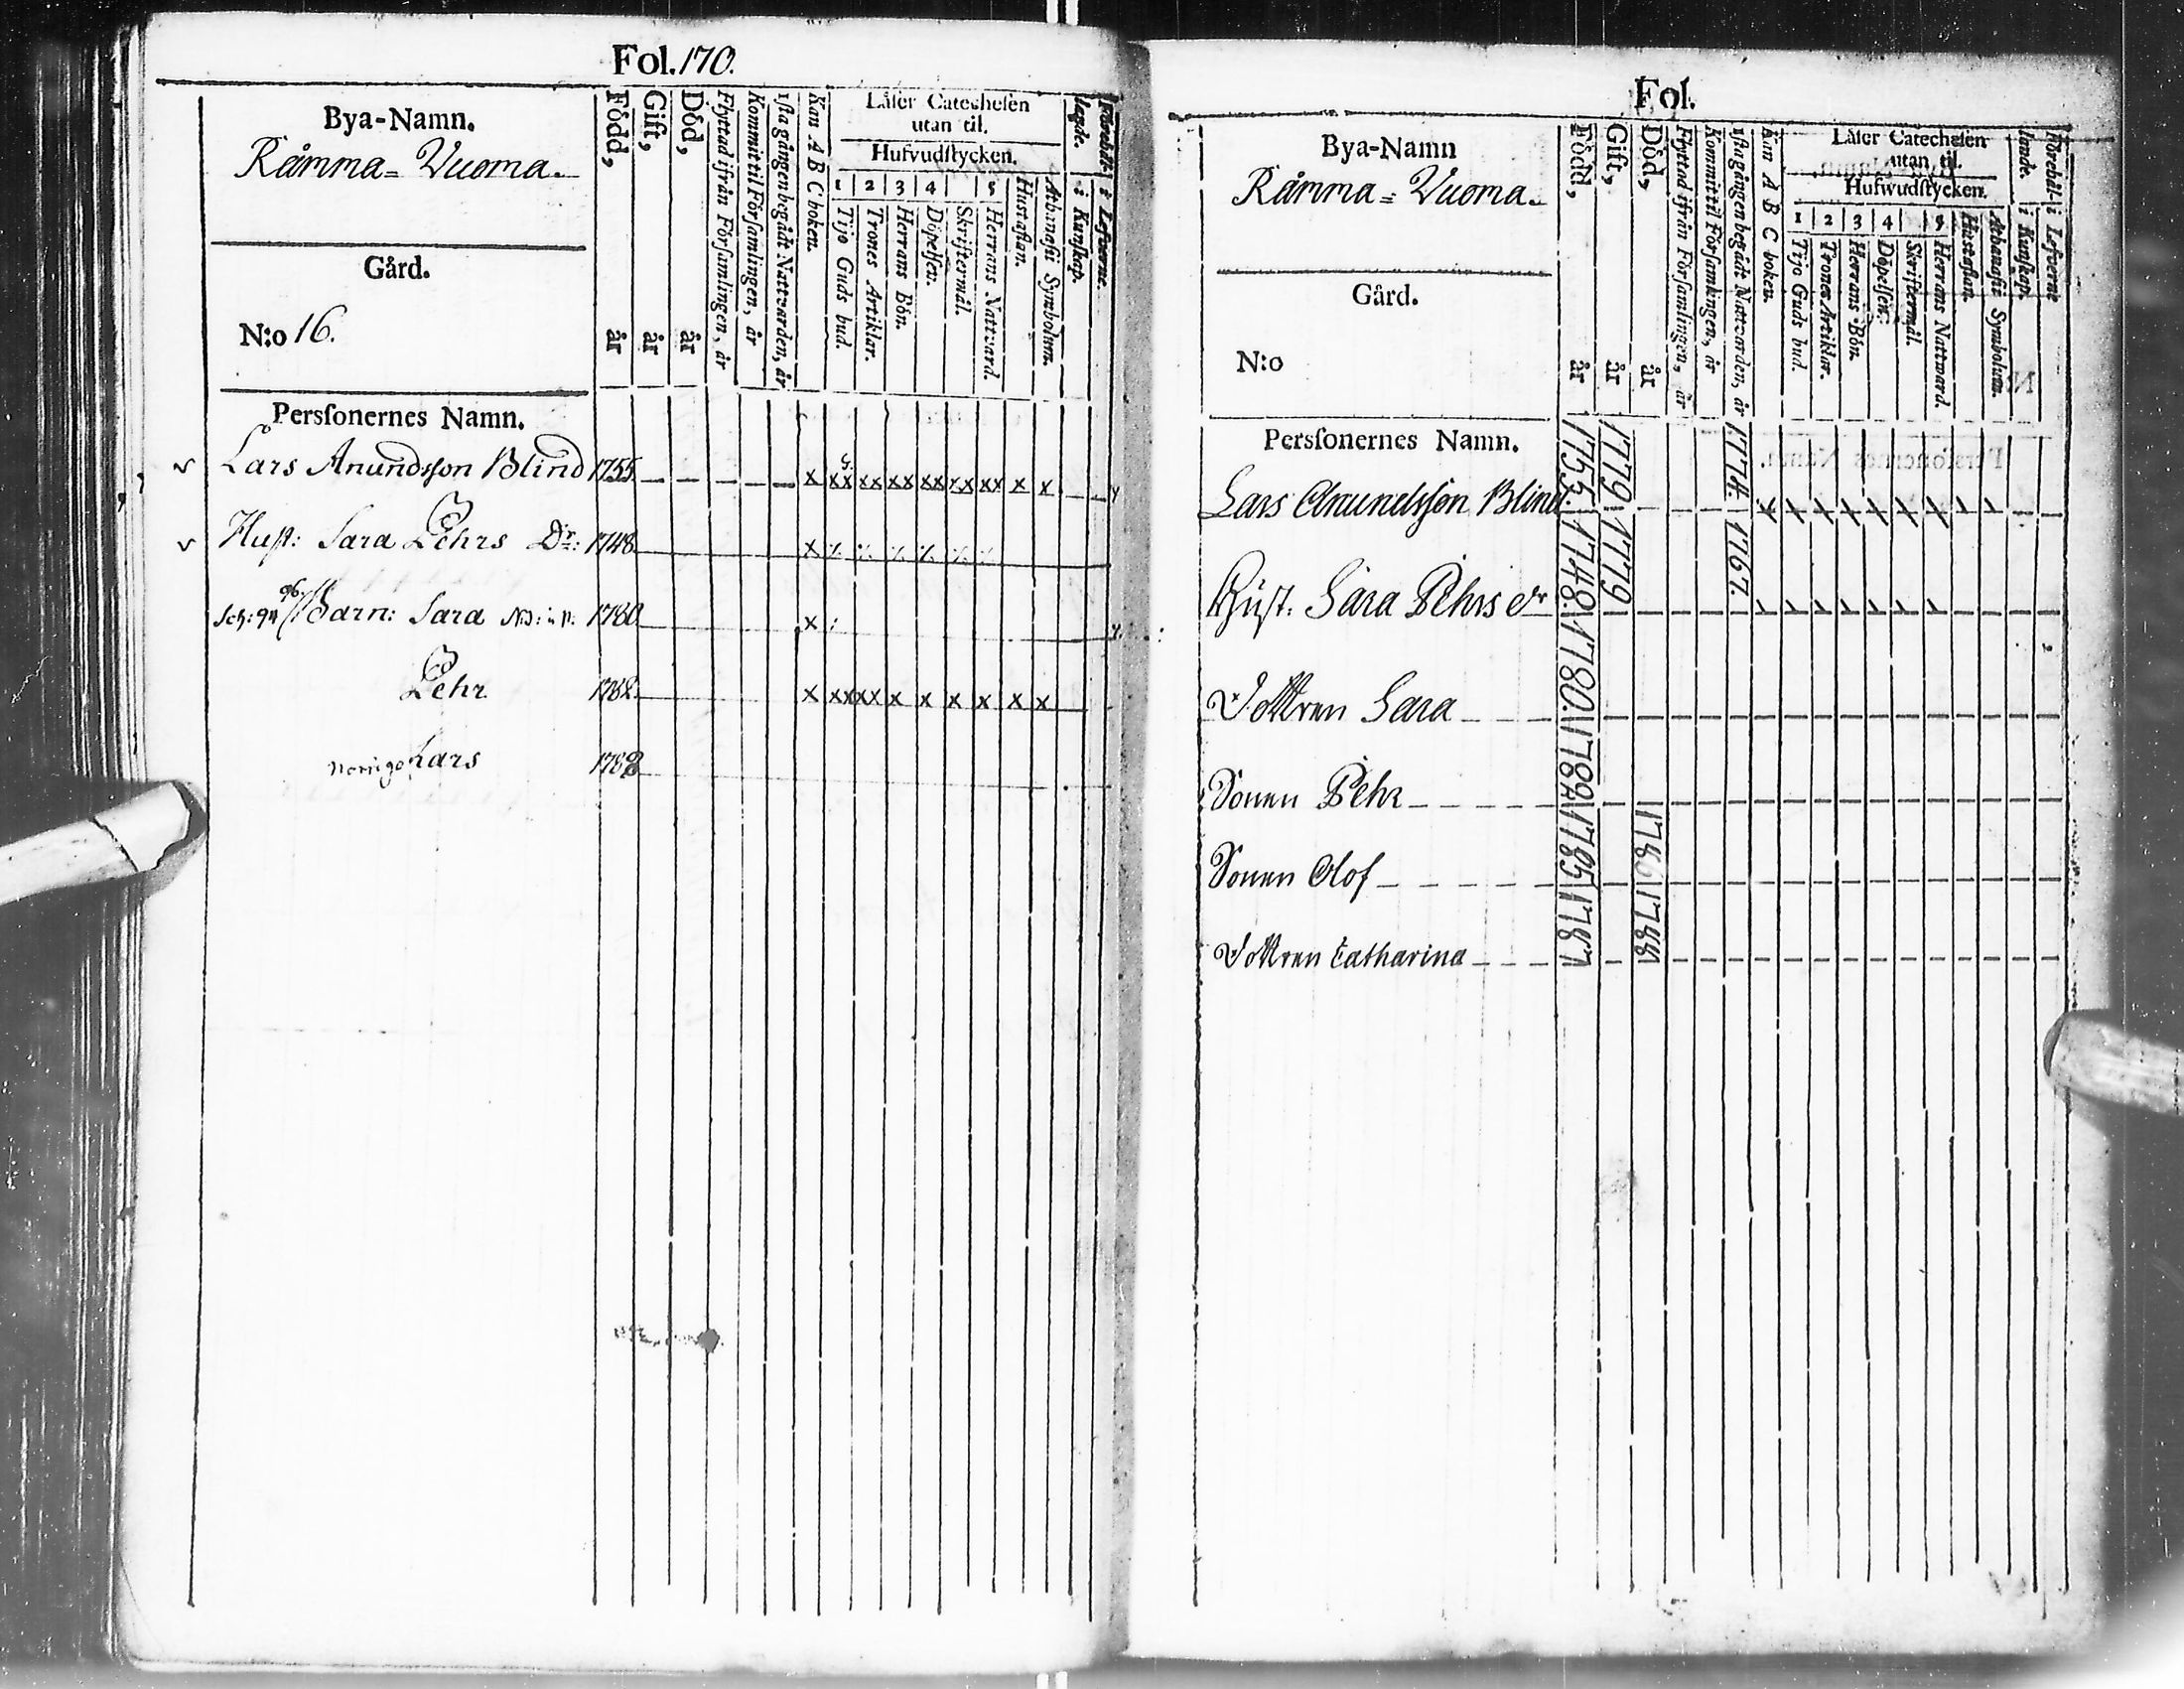 Fol. 170.
Bya-Namn.
Råmma = Vuoma.
Gård.
N:o 16.
Persſonernes Namn.
Född, år
Gift, år
Död, år
Flyttad ifrån Förſamlingen, år
Kommit til Förſamlingen, år
1ſta gången begådt Nattvarden, år
Kan A B C boken.
Låſer Catecheſen
utan til.
Hufvudſtycken.
1 2 3 4 5
Tijo Guds bud.
Trones Artiklar.
Herrans Bön.
Döpelſen.
Skriftermål.
Herrans Nattvard.
Huſtaflan.
Athanaſii Symbolum.
i Kunſkap.
i Lefverne.
Lars Anundsſon Blind 1755
Huſt: Sara Pehrs Dr: 1748
Barn: Sara 1780
Pehr 1782
Lars 1788
Fol.
Bya-Namn
Råmma = Vuoma.
Gård.
N:o
Persſonernes Namn.
Född, år
Gift, år
Död, år
Flyttad ifrån Förſamlingen, år
Kommit til Förſamlingen, år
1ſta gången begådt Nattvarden, år
Kan A B C boken.
Låſer Catecheſen
utan til.
Hufwudſtycken.
1 2 3 4 5
Tijo Guds bud.
Trones Artiklar.
Herrans Bön.
Döpelſen.
Skriftermål.
Herrans Nattward.
Huſtaflan.
Athanaſii Symbolum.
i Kunſkap.
i Lefverne
Lars Anundsſon Blind 1755 1779 1774.
Huſt. Sara Pehrs dr 1748 1779 1767.
Dottren Sara 1780
Sonen Pehr 1782
Sonen Olof 1785 1786
Dottren Catharina 1787 1788